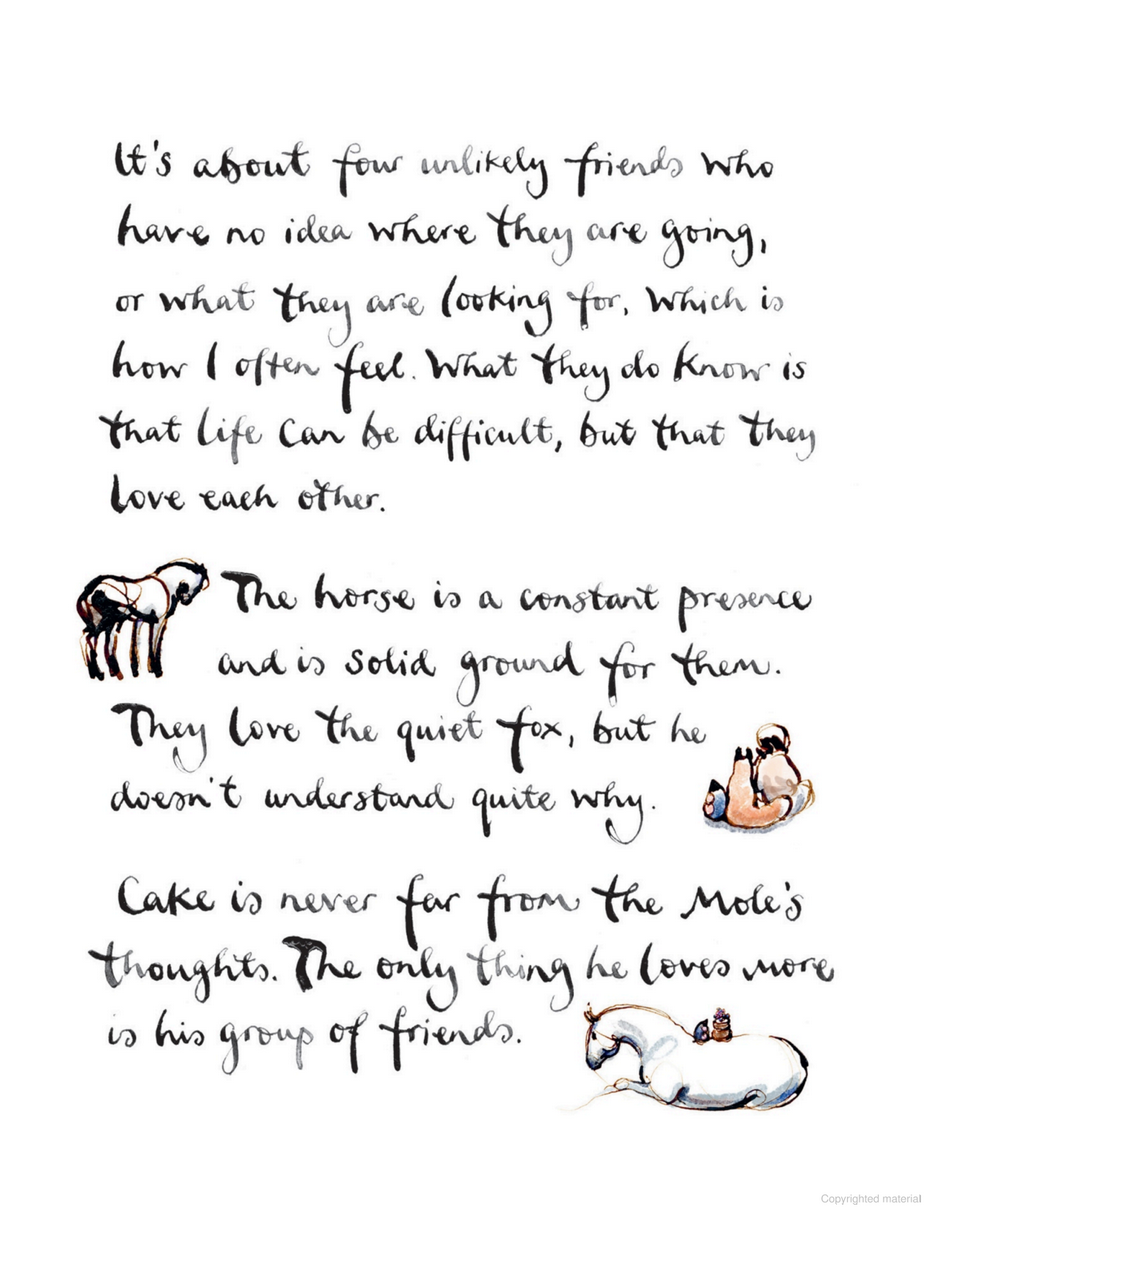 It's about four unlikely friends who
have no idea where they are going,
or what they are looking for, which is
how I often feel. What they do know is
that life can be difficult, but that they
love each other.
The horse is a constant presence
and is solid ground for them.
They love the quiet fox, but he
doesn't understand quite why.
Cake is never far from the Mole's
thoughts. The only thing he loves more
is his group of friends.
Copyrighted material